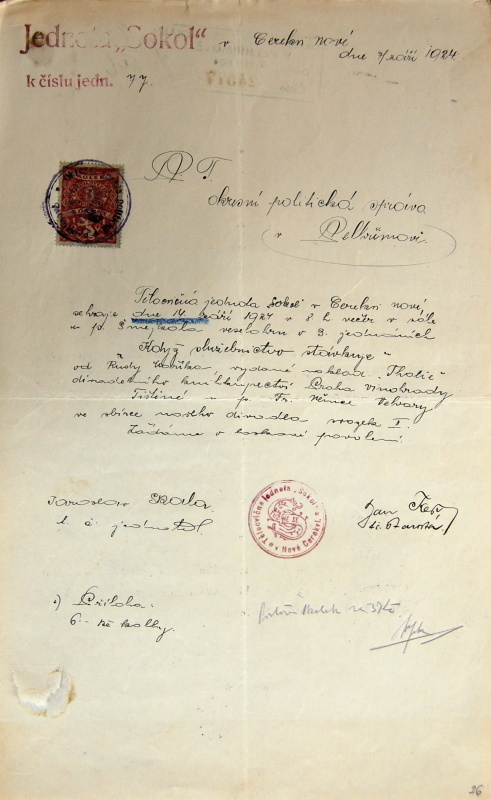 Jednota „Sokol“ v Cerekvi nové
dne 7/září 1924
k číslu jedn. 77.
24517
P. T.
okresní politická správa
v Pelhřimově.
Tělocvičná jednota Sokol v Cerekvi nové
sehraje dne 14. září 1924 v 8 h. večer v sále
u p. Šmejkala veselohru v 3. jednáních
„Když služebnictvo stávkuje“
od Rudy Maříka, vydané náklad. „Thalie“
divadelního knihkupectví Praha Vinohrady
Tištěné u p. Fr. Němce Velvary
ve sbírce nového divadla svazek I.
Žádáme o laskavé povolení.
Jaroslav Skala
t. č. jednatel.
Tělocvičná jednota „Sokol“ v Nové Cerekvi.
Jan
t. č. starosta
1) Příloha.
6.- Kč kolky.
26